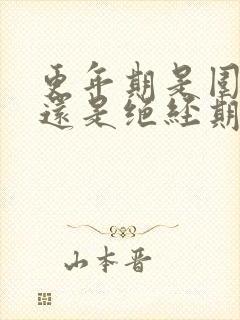 更年期是圍
還是绝经期
山本晋